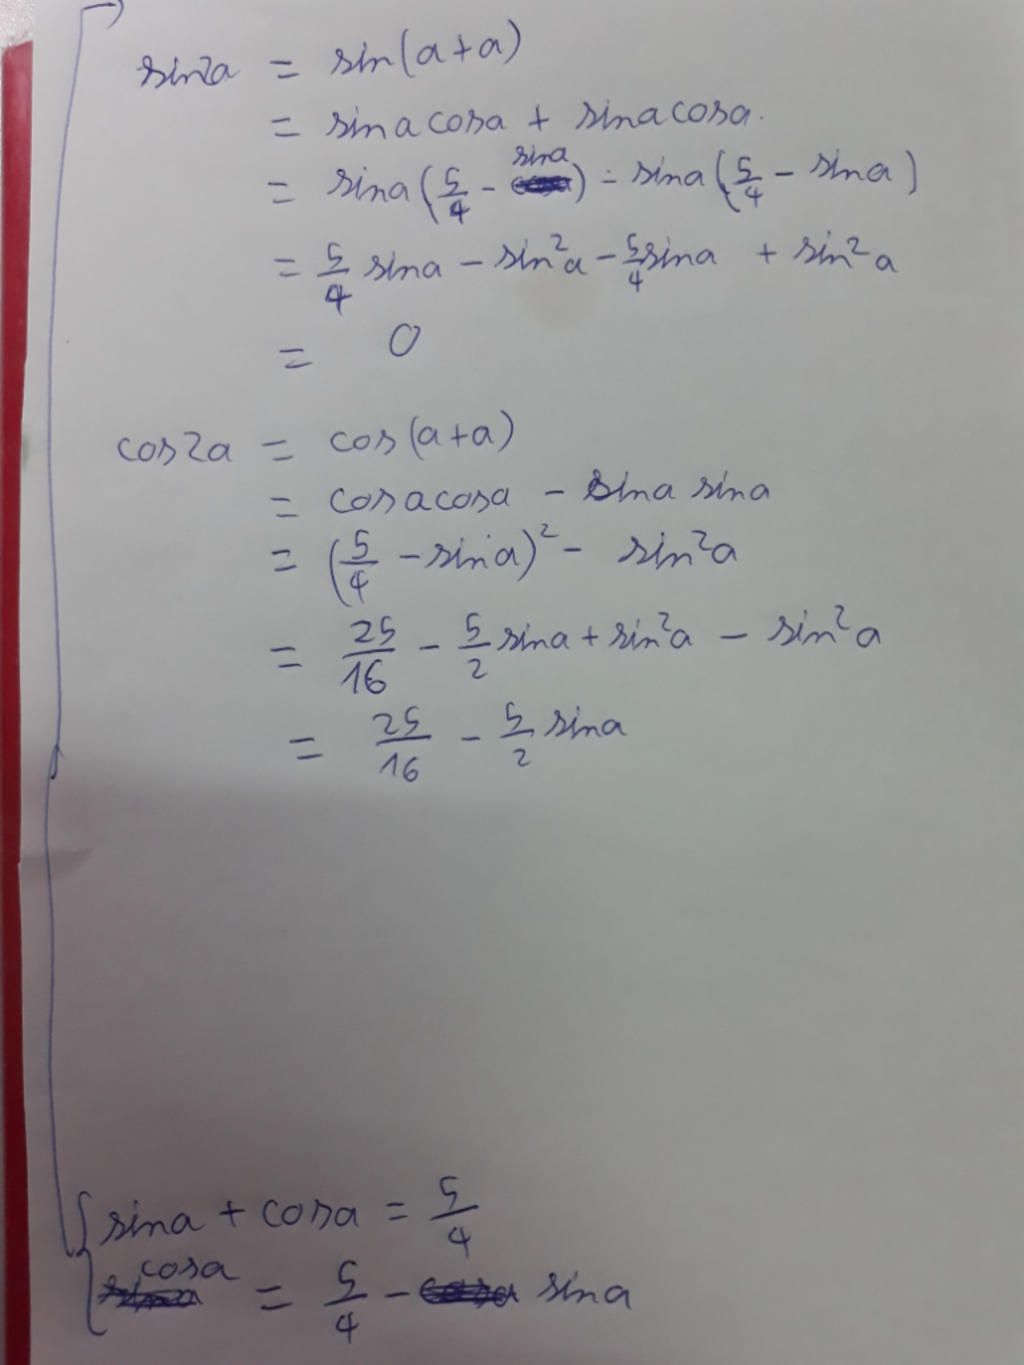 sin2a = sin(a+a)
= sina cosa + sina cosa.
= sina(5/4 - sina) - sina(5/4 - sina)
= 5/4 sina - sin²a - 5/4 sina + sin²a
= 0
cos2a = cos(a+a)
= cosa cosa - sina sina
= (5/4 - sina)² - sin²a
= 25/16 - 5/2 sina + sin²a - sin²a
= 25/16 - 5/2 sina
sina + cosa = 5/4
cosa = 5/4 - sina